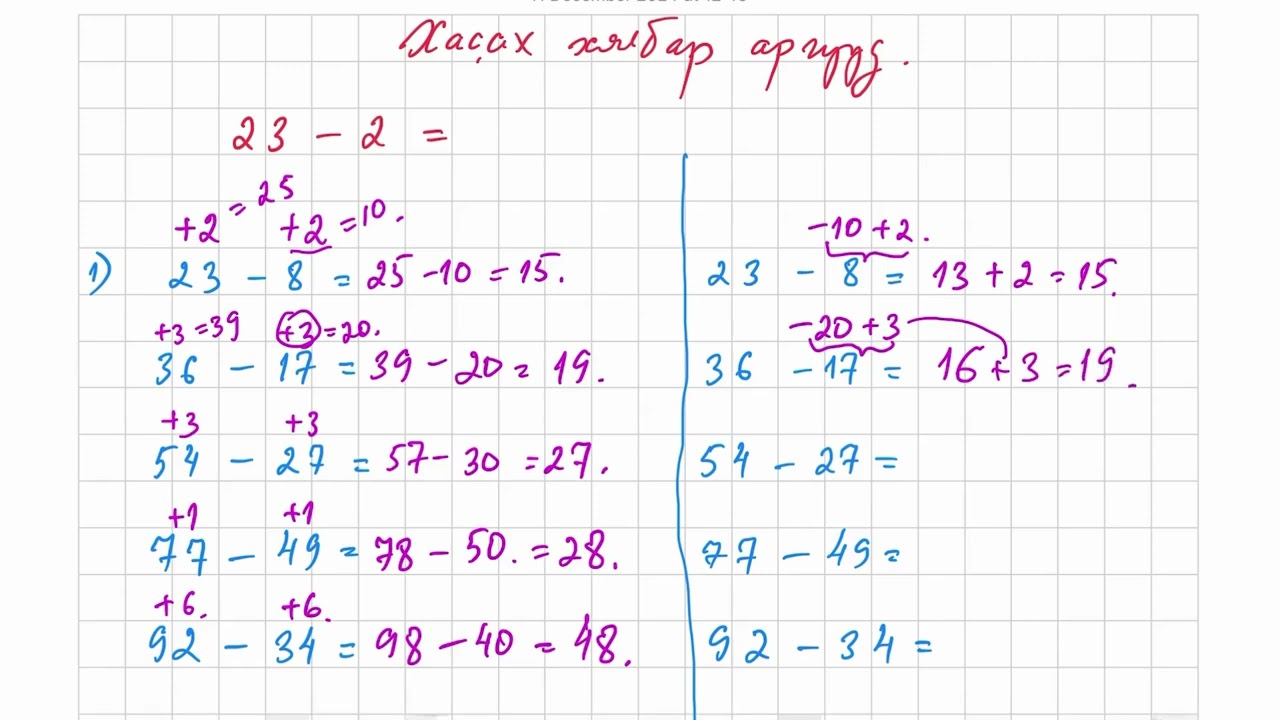 Хасах хялбар аргууд.
23 - 2 =
+2 = 25 +2 = 10.
1) 23 - 8 = 25 - 10 = 15.
+3 = 39 +3 = 20.
36 - 17 = 39 - 20 = 19.
+3 +3
54 - 27 = 57 - 30 = 27.
+1 +1
77 - 49 = 78 - 50. = 28.
+6. +6.
92 - 34 = 98 - 40 = 48.
-10 + 2.
23 - 8 = 13 + 2 = 15.
-20 + 3
36 - 17 = 16 + 3 = 19.
54 - 27 =
77 - 49 =
92 - 34 =